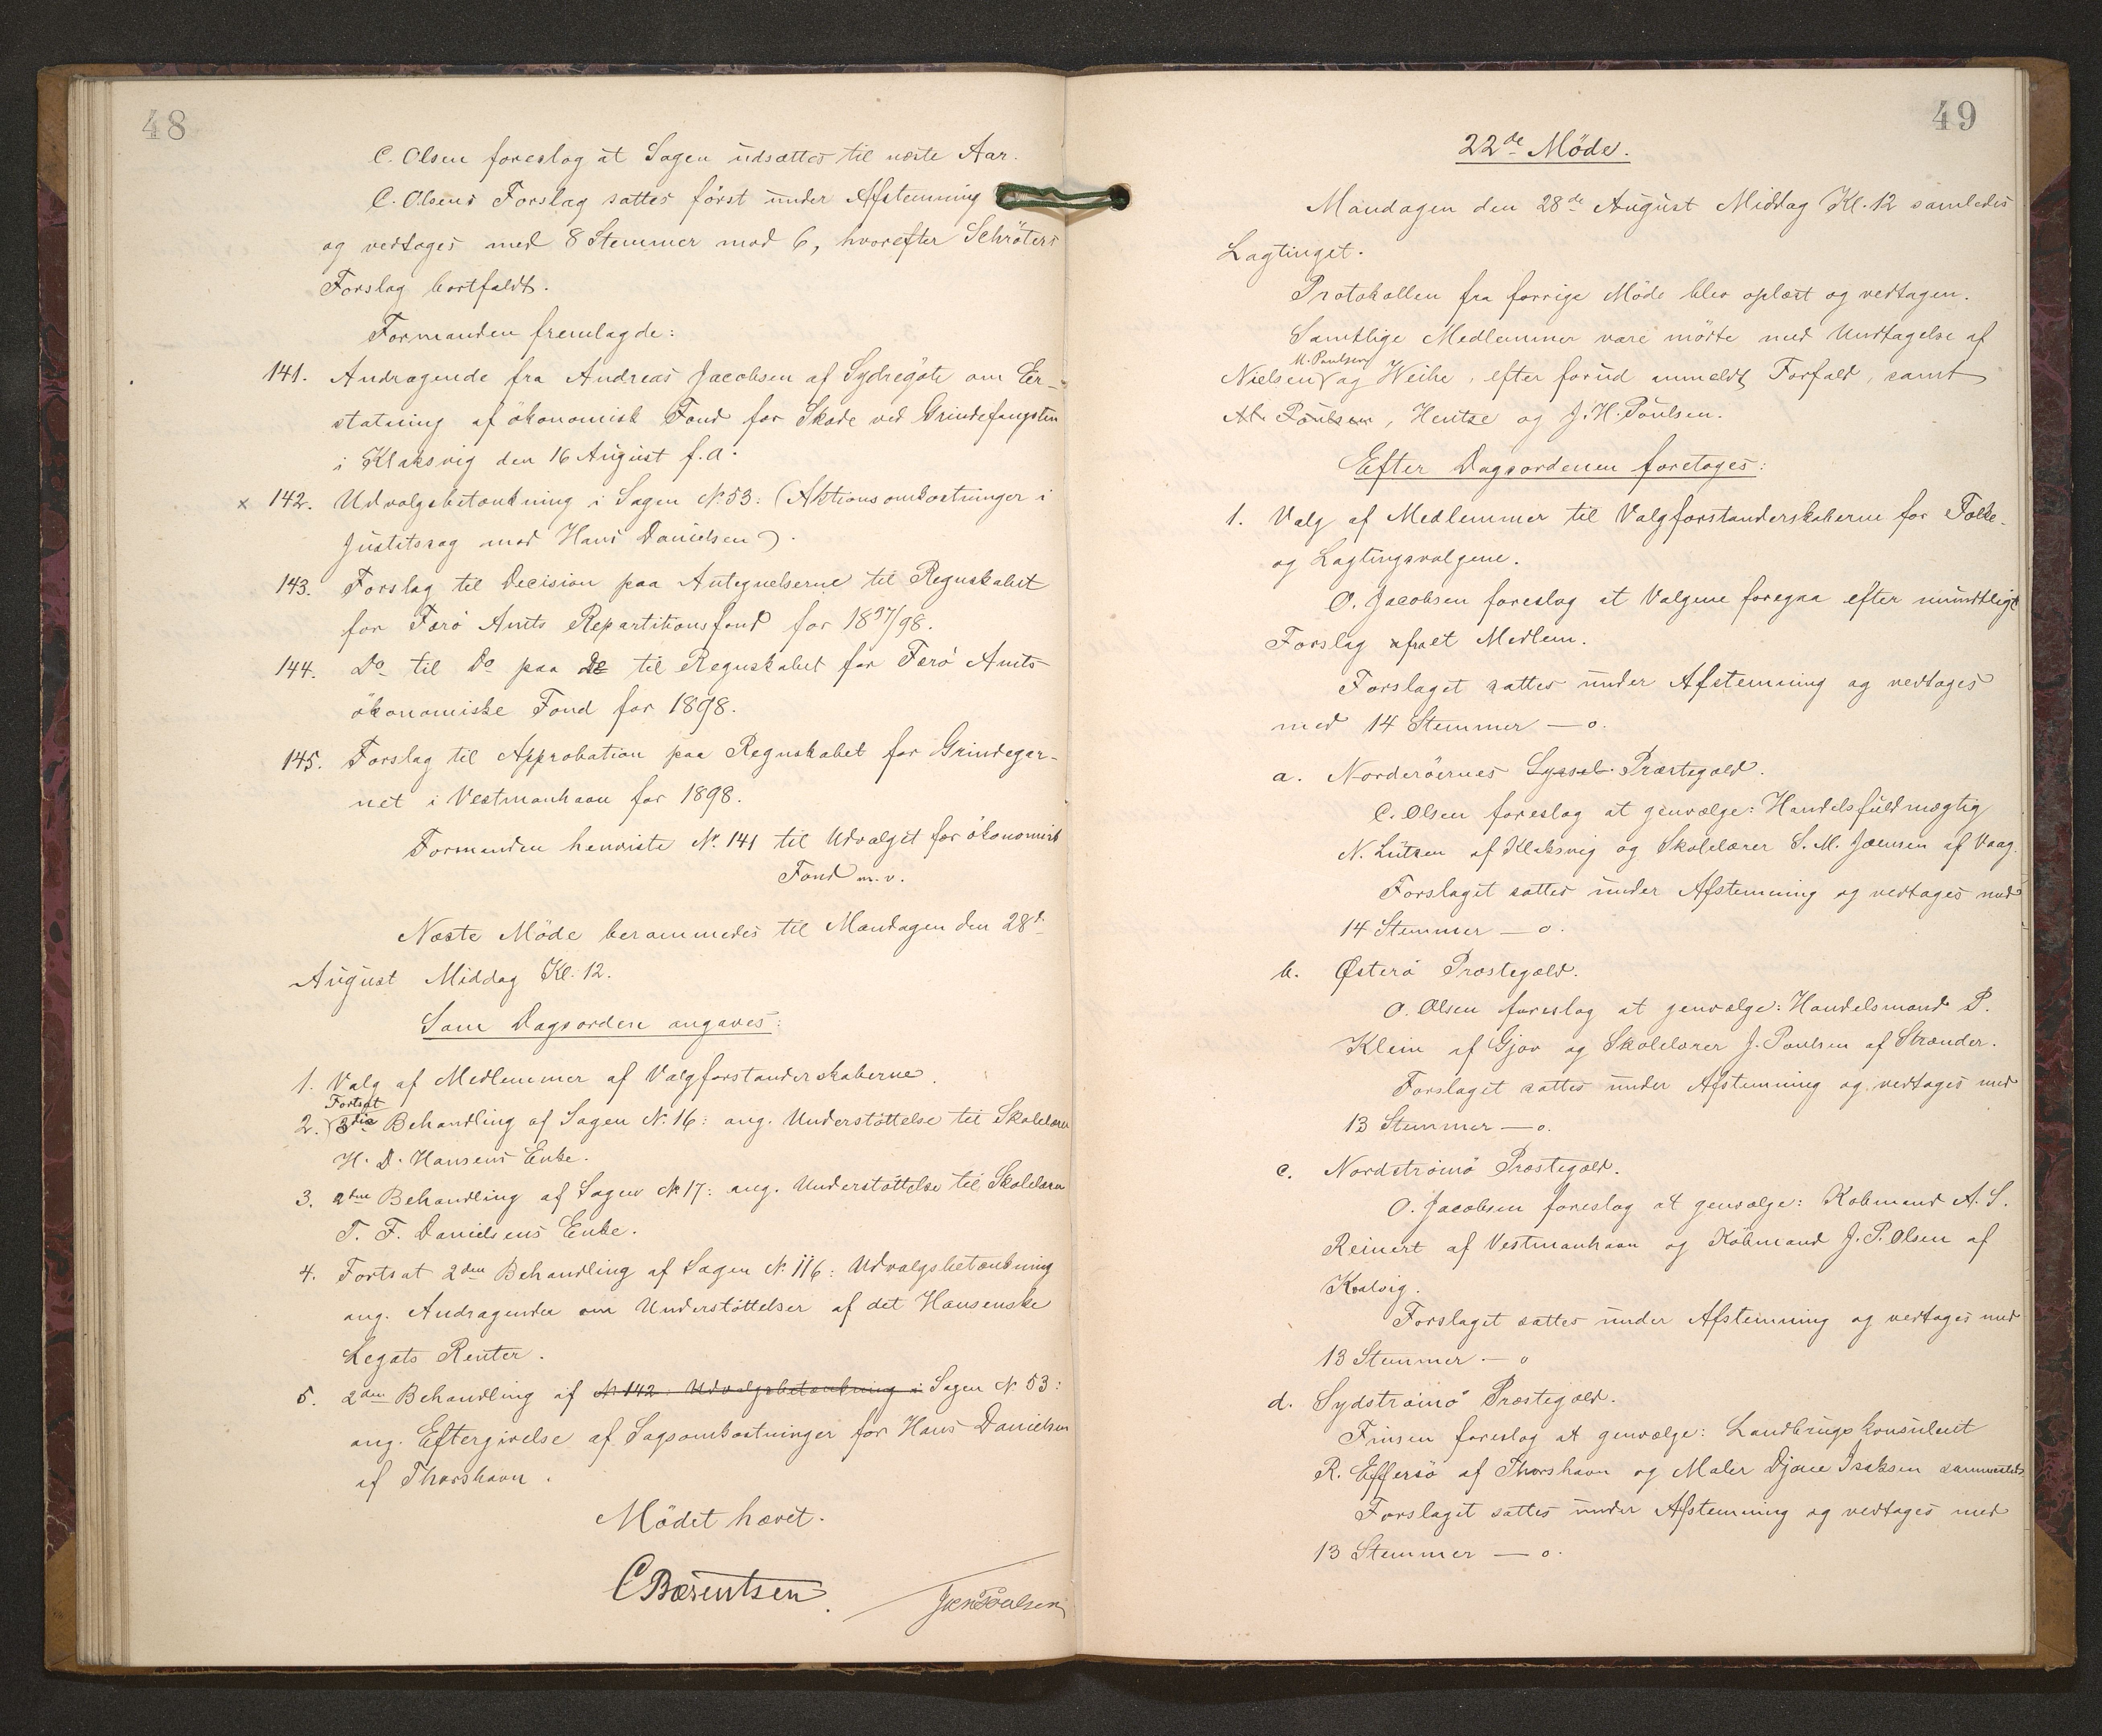 48
C. Olsen foreslog at Sagen udsættes til næste Aar.
C. Olsens Forslag sattes först under Afstemning
og vedtoges med 8 Stemmer mod 6, hvorefter Schröters
Forslag bortfaldt.
Formanden fremlagde:
141. Andragende fra Andreas Jacobsen af Sydregöte om Er-
statning af ökonomisk Fond for Skade ved Grindefangsten
i Klaksvig den 16 August f.A.
x 142. Udvalgsbetænkning i Sagen N. 53: (Aktionsomkostninger i
Justitssag mod Hans Danielsen).
143. Forslag til Decision paa Antegnelserne til Regnskabet
for Færö Amts Repartitionsfond for 1897/98.
144. Do til Do paa Do til Regnskabet for Færö Amts
ökonomiske Fond for 1898.
145. Forslag til Approbation paa Regnskabet for Grindegar-
net i Vestmanhavn for 1898.
Formanden henviste N. 141 til Udvalget for ökonomisk
Fond m.v.
Næste Möde berammedes til Mandagen den 28d
August Middag Kl. 12.
Som Dagsorden angaves:
1. Valg af Medlemmer af Valgforstanderskaberne.
Fortsat
2. 3die Behandling af Sagen N. 16: ang. Understöttelse til Skolelærer
H. D. Hansens Enke.
3. 2den Behandling af Sagen N. 17: ang. Understöttelse til Skolelærer
T. F. Danielsens Enke.
4. Fortsat 2den Behandling af Sagen N. 116: Udvalgsbetænkning
ang. Andragender om Understöttelser af det Hansenske
Legats Renter.
5. 2den Behandling af N. 142: Udvalgsbetænkning i Sagen N. 53:
ang. Eftergivelse af Sagsomkostninger for Hans Danielsen
af Thorshavn.
Mödet hævet.
C Bærentsen.
49
22de Möde.
Mandagen den 28de August Middag Kl. 12 samledes
Lagtinget.
Protokollen fra forrige Möde blev oplæst og vedtagen.
Samtlige Medlemmer vare mödte med Undtagelse af
M. Paulsen
Nielsen og Weihe, efter forud anmeldt Forfald, samt
M. Poulsen, Hentze og J. H. Poulsen.
Efter Dagsordenen foretoges:
1. Valg af Medlemmer til Valgforstanderskaberne for Folke-
og Lagtingsvalgene.
O. Jacobsen foreslog at Valgene foregaa efter mundtligt
Forslag fra et Medlem.
Forslaget sattes under Afstemning og vedtoges
med 14 Stemmer — o.
a. Norderöernes Syssel Præstegæld.
C. Olsen foreslog at genvælge: Handelsfuldmægtig
N. Lützen af Klaksvig og Skolelærer S. M. Joensen af Vaag.
Forslaget sattes under Afstemning og vedtoges med
14 Stemmer — o.
b. Østerö Præstegæld.
O. Olsen foreslog at genvælge: Handelsmand P.
Klein af Gjov og Skolelærer J. Poulsen af Strænder.
Forslaget sattes under Afstemning og vedtoges med
13 Stemmer — o.
c. Nordströmö Præstegæld.
O. Jacobsen foreslog at genvælge: Köbmand A. S.
Reinert af Vestmanhavn og Köbmand J. P. Olsen af
Kvalvig.
Forslaget sattes under Afstemning og vedtoges med
13 Stemmer — o
d. Sydströmö Præstegæld.
Finsen foreslog at genvælge: Landbrugskonsulent
R. Effersö af Thorshavn og Maler Djone Isaksen sammesteds
Forslaget sattes under Afstemning og vedtoges med
13 Stemmer — o.